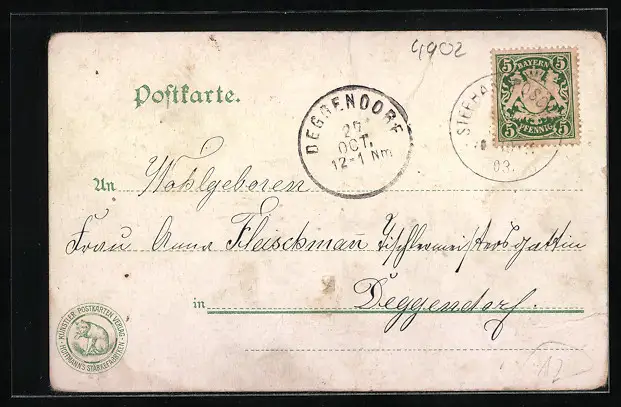 4902
5 BAYERN 5
5 PFENNIG 5
Postkarte.
DEGGENDORF
27
OCT.
12-1 Nm
03.
An Wohlgeboren
Frau Anna Fleischmann Tischlermeistersgattin
in Deggendorf.
KÜNSTLER POSTKARTEN VERLAG
HOFFMANN'S STÄRKEFABRIKEN
12